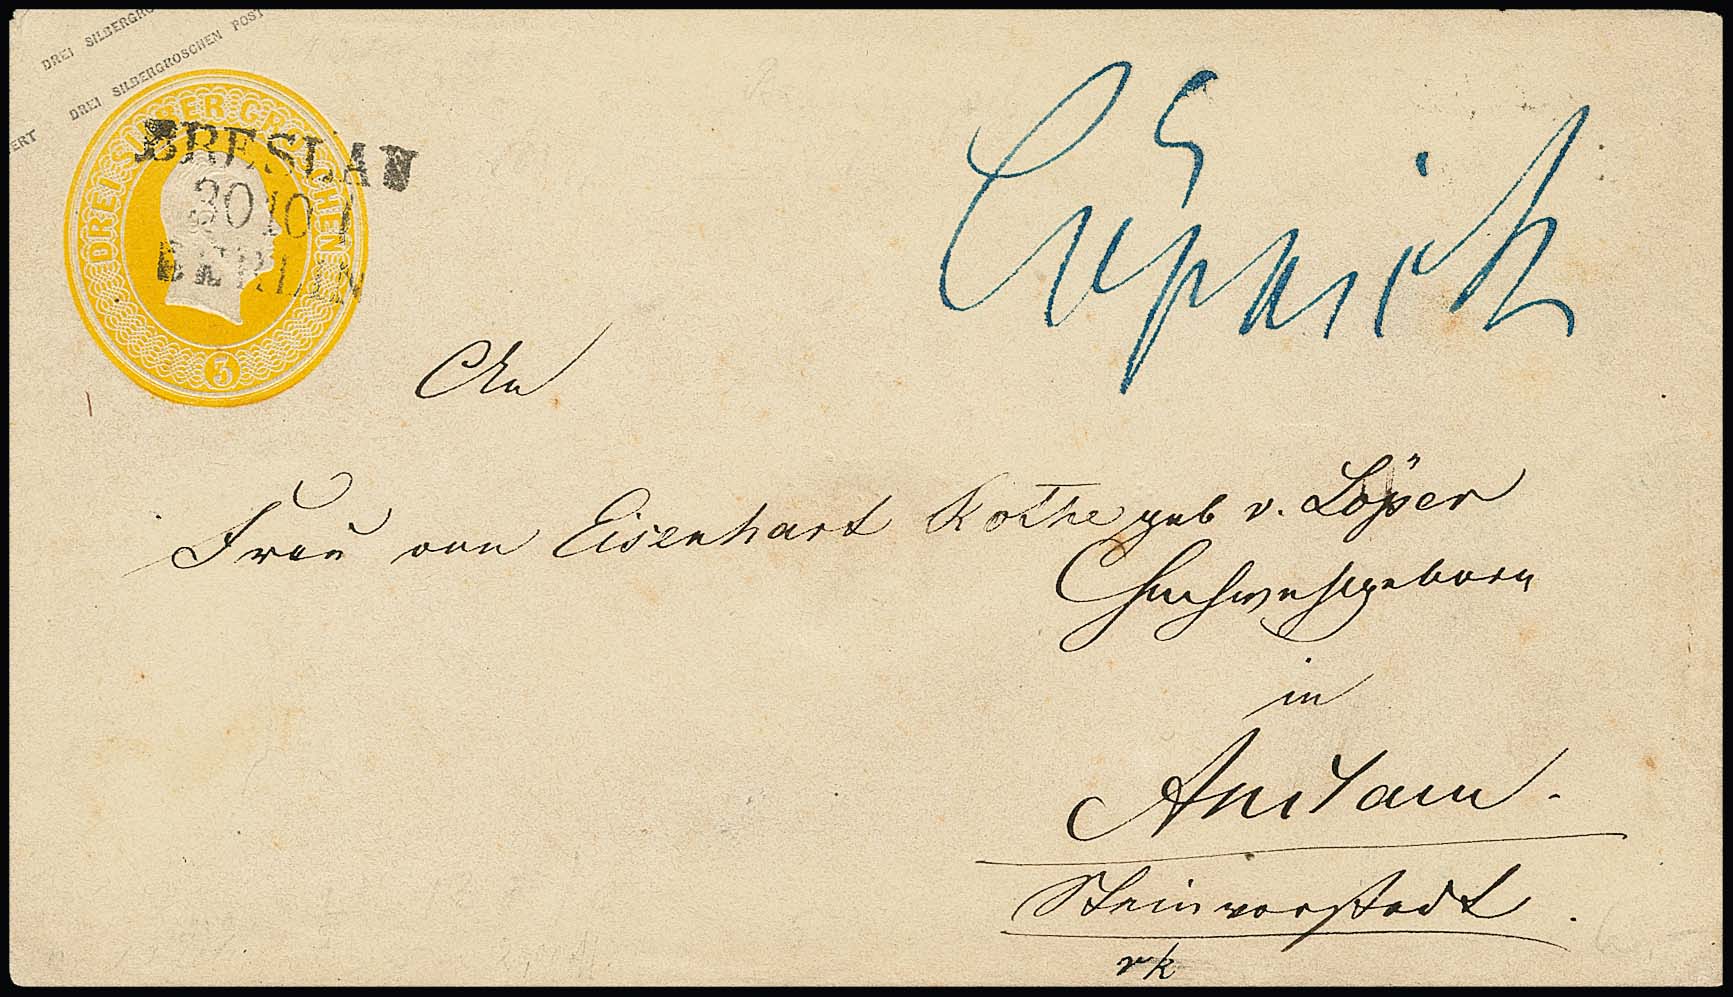 DREI SILBERGRO
DREI SILBERGROSCHEN POST
ERT
DREI SILBER GROSCHEN
3
BRESLAU
30 10 I
BERLIN
An
Frau von Eisenhart Rothe geb v. Löper
Hochwohlgeborn
in
Anclam.
Steinvorstadt.